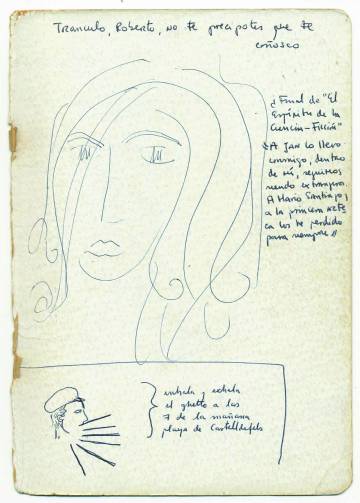 Tranculo, Roberto, no te precipites que te
conozco
¿Final de "El
Espíritu de la
Ciencia-Ficción"
«A Jan lo llevo
conmigo, dentro
de mí, seguimos
siendo extranjeros.
A Mario Santiago y
a la primera
los he perdido
para siempre»
inhala y exhala
el ghetto a las
7 de la mañana
playa de Castelldefels